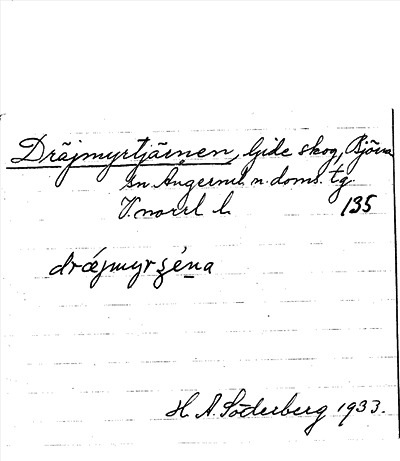 Dräjmyrtjärnen, Gide skog, Björna
sn. Ångerml. n. doms. tg.
V.norrl l. 135
drǽjmyrʒéna
H. A. Söderberg 1933.